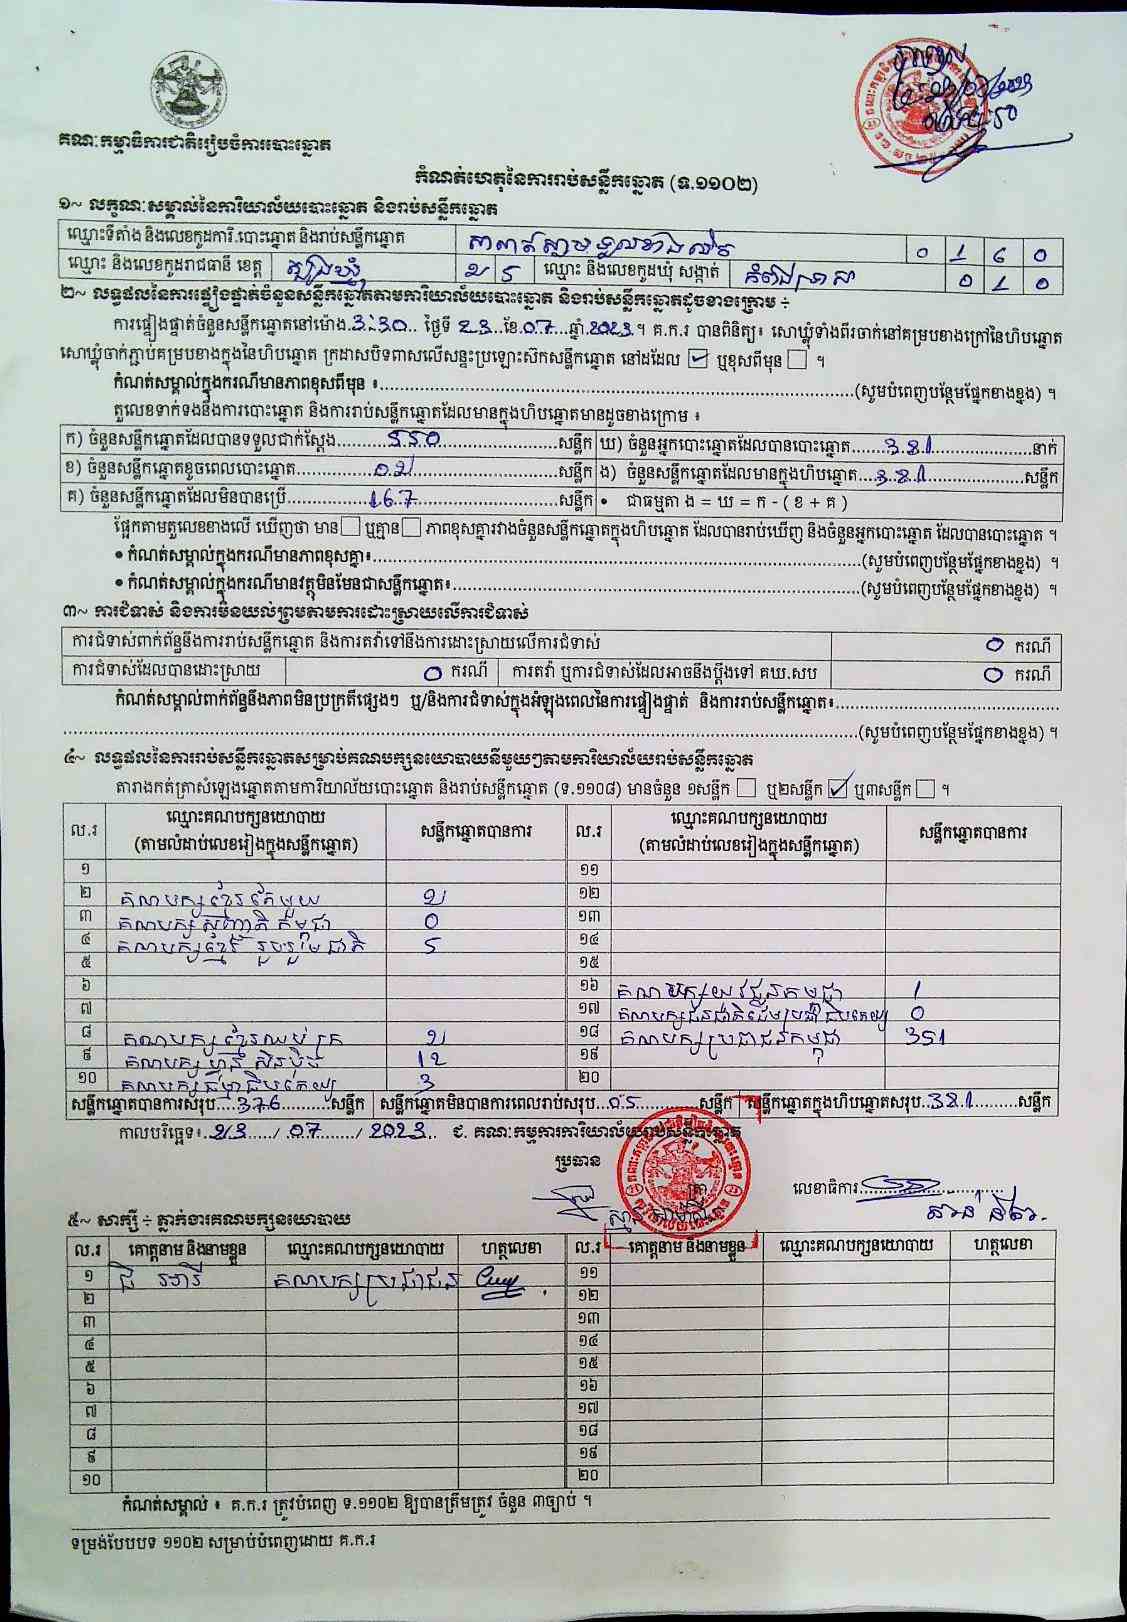 គណៈកម្មាធិការជាតិរៀបចំការបោះឆ្នោត
កំណត់ហេតុនៃការរាប់សន្លឹកឆ្នោត (ទ.១១០២)
១~ លក្ខណៈសម្គាល់នៃការិយាល័យបោះឆ្នោត និងរាប់សន្លឹកឆ្នោត
ឈ្មោះទីតាំង និងលេខកូដការិ.បោះឆ្នោត និងរាប់សន្លឹកឆ្នោត 0 1 6 0
ឈ្មោះ និងលេខកូដរាជធានី ខេត្ត ត្បូងឃ្មុំ ២ 5 ឈ្មោះ និងលេខកូដឃុំ សង្កាត់ 0 1 0
២~ លទ្ធផលនៃការផ្ទៀងផ្ទាត់ចំនួនសន្លឹកឆ្នោតតាមការិយាល័យបោះឆ្នោត និងរាប់សន្លឹកឆ្នោតដូចខាងក្រោម ÷
ការផ្ទៀងផ្ទាត់ចំនួនសន្លឹកឆ្នោតនៅម៉ោង.3:30.. ថ្ងៃទី 23..ខែ.07....ឆ្នាំ.2023.។ គ.ក.រ បានពិនិត្យ៖ សោឃ្លុំទាំងពីរចាក់នៅគម្របខាងក្រៅនៃហិបឆ្នោត
សោឃ្លុំចាក់ភ្ជាប់គម្របខាងក្នុងនៃហិបឆ្នោត ក្រដាសបិទពាសលើសន្ទះប្រឡោះស៊កសន្លឹកឆ្នោត នៅដដែល ☑ ឬខុសពីមុន ☐ ។
កំណត់សម្គាល់ក្នុងករណីមានភាពខុសពីមុន ៖.....(សូមបំពេញបន្ថែមផ្នែកខាងខ្នង) ។
តួលេខទាក់ទងនឹងការបោះឆ្នោត និងការរាប់សន្លឹកឆ្នោតដែលមានក្នុងហិបឆ្នោតមានដូចខាងក្រោម ៖
ក) ចំនួនសន្លឹកឆ្នោតដែលបានទទួលជាក់ស្ដែង.....550.....សន្លឹក ឃ) ចំនួនអ្នកបោះឆ្នោតដែលបានបោះឆ្នោត.....381.....នាក់
ខ) ចំនួនសន្លឹកឆ្នោតខូចពេលបោះឆ្នោត.....០២.....សន្លឹក ង) ចំនួនសន្លឹកឆ្នោតដែលមានក្នុងហិបឆ្នោត.....381.....សន្លឹក
គ) ចំនួនសន្លឹកឆ្នោតដែលមិនបានប្រើ.....167.....សន្លឹក • ជាធម្មតា ង = ឃ = ក - ( ខ + គ )
ផ្អែកតាមតួលេខខាងលើ ឃើញថា មាន ☐ ឬគ្មាន ☐ ភាពខុសគ្នារវាងចំនួនសន្លឹកឆ្នោតក្នុងហិបឆ្នោត ដែលបានរាប់ឃើញ និងចំនួនអ្នកបោះឆ្នោត ដែលបានបោះឆ្នោត ។
• កំណត់សម្គាល់ក្នុងករណីមានភាពខុសគ្នា៖.....(សូមបំពេញបន្ថែមផ្នែកខាងខ្នង) ។
• កំណត់សម្គាល់ក្នុងករណីមានវត្ថុមិនមែនជាសន្លឹកឆ្នោត៖.....(សូមបំពេញបន្ថែមផ្នែកខាងខ្នង) ។
៣~ ការជំទាស់ និងការមិនយល់ព្រមតាមការដោះស្រាយលើការជំទាស់
ការជំទាស់ពាក់ព័ន្ធនឹងការរាប់សន្លឹកឆ្នោត និងការតវ៉ាទៅនឹងការដោះស្រាយលើការជំទាស់ 0 ករណី
ការជំទាស់ដែលបានដោះស្រាយ 0 ករណី ការតវ៉ា ឬការជំទាស់ដែលអាចនឹងប្ដឹងទៅ គឃ.សប 0 ករណី
កំណត់សម្គាល់ពាក់ព័ន្ធនឹងភាពមិនប្រក្រតីផ្សេងៗ ឬ/និងការជំទាស់ក្នុងអំឡុងពេលនៃការផ្ទៀងផ្ទាត់ និងការរាប់សន្លឹកឆ្នោត៖.....
.....(សូមបំពេញបន្ថែមផ្នែកខាងខ្នង) ។
៤~ លទ្ធផលនៃការរាប់សន្លឹកឆ្នោតសម្រាប់គណបក្សនយោបាយនីមួយៗតាមការិយាល័យរាប់សន្លឹកឆ្នោត
តារាងកត់ត្រាសំឡេងឆ្នោតតាមការិយាល័យបោះឆ្នោត និងរាប់សន្លឹកឆ្នោត (ទ.១១០៨) មានចំនួន ១សន្លឹក ☐ ឬ២សន្លឹក ☑ ឬ៣សន្លឹក ☐ ។
ល.រ ឈ្មោះគណបក្សនយោបាយ (តាមលំដាប់លេខរៀងក្នុងសន្លឹកឆ្នោត) សន្លឹកឆ្នោតបានការ ល.រ ឈ្មោះគណបក្សនយោបាយ (តាមលំដាប់លេខរៀងក្នុងសន្លឹកឆ្នោត) សន្លឹកឆ្នោតបានការ
១ ១១
២ គណបក្សខ្មែរតែមួយ ២ ១២
៣ គណបក្ស សញ្ជាតិ កម្ពុជា 0 ១៣
៤ គណបក្សខ្មែរ រួបរួម ជាតិ 5 ១៤
៥ ១៥
៦ ១៦ គណបក្សយុវជនកម្ពុជា 1
៧ ១៧ គណបក្សជនជាតិដើមប្រជាធិបតេយ្យ 0
៨ គណបក្សខ្មែរឈប់ក្រ ២ ១៨ គណបក្សប្រជាជនកម្ពុជា 351
៩ គណបក្ស ហ៊្វុនស៊ិនប៉ិច 12 ១៩
១០ គណបក្សធម្មាធិបតេយ្យ 3 ២០
សន្លឹកឆ្នោតបានការសរុប....376.....សន្លឹក សន្លឹកឆ្នោតមិនបានការពេលរាប់សរុប...05.....សន្លឹក សន្លឹកឆ្នោតក្នុងហិបឆ្នោតសរុប..381.....សន្លឹក
កាលបរិច្ឆេទ៖..23...../ 07....../ 2023.. ជ. គណៈកម្មការការិយាល័យរាប់សន្លឹកឆ្នោត
ប្រធាន
លេខាធិការ.....
៥~ សាក្សី ÷ ភ្នាក់ងារគណបក្សនយោបាយ
ល.រ គោត្តនាម និងនាមខ្លួន ឈ្មោះគណបក្សនយោបាយ ហត្ថលេខា ល.រ គោត្តនាម និងនាមខ្លួន ឈ្មោះគណបក្សនយោបាយ ហត្ថលេខា
១ គណបក្សប្រជាជន ១១
២ ១២
៣ ១៣
៤ ១៤
៥ ១៥
៦ ១៦
៧ ១៧
៨ ១៨
៩ ១៩
១០ ២០
កំណត់សម្គាល់ ៖ គ.ក.រ ត្រូវបំពេញ ទ.១១០២ ឱ្យបានត្រឹមត្រូវ ចំនួន ៣ច្បាប់ ។
ទម្រង់បែបបទ ១១០២ សម្រាប់បំពេញដោយ គ.ក.រ